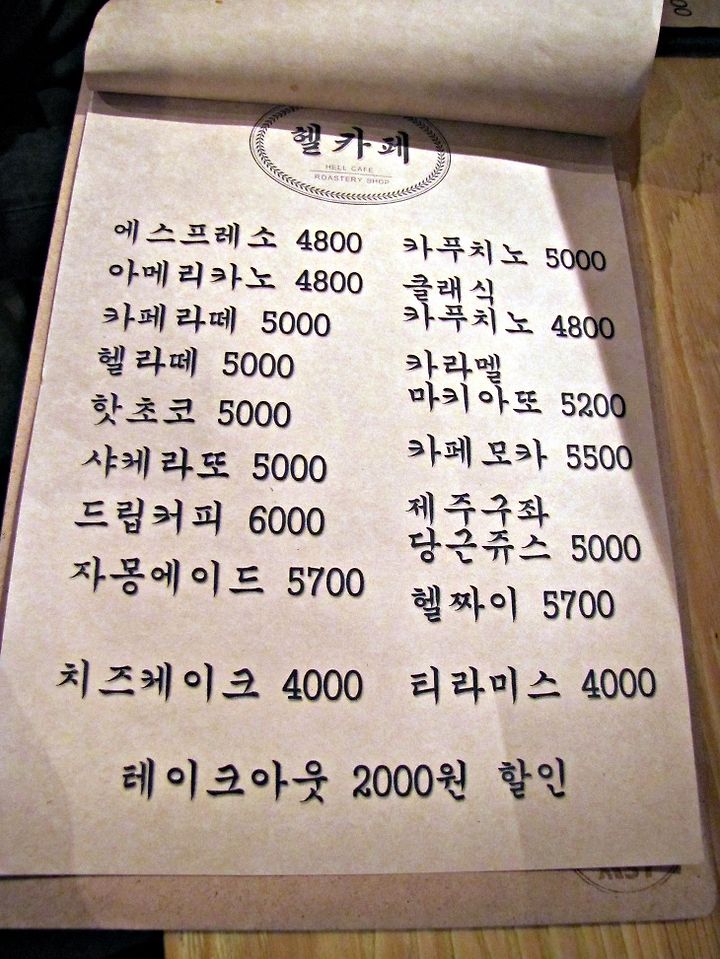 헬카페
HELL CAFE
ROASTERY SHOP
에스프레소 4800
아메리카노 4800
카페라떼 5000
헬라떼 5000
핫초코 5000
샤케라또 5000
드립커피 6000
자몽에이드 5700
카푸치노 5000
클래식
카푸치노 4800
카라멜
마키아또 5200
카페모카 5500
제주구좌
당근쥬스 5000
헬짜이 5700
치즈케이크 4000
티라미스 4000
테이크아웃 2000원 할인